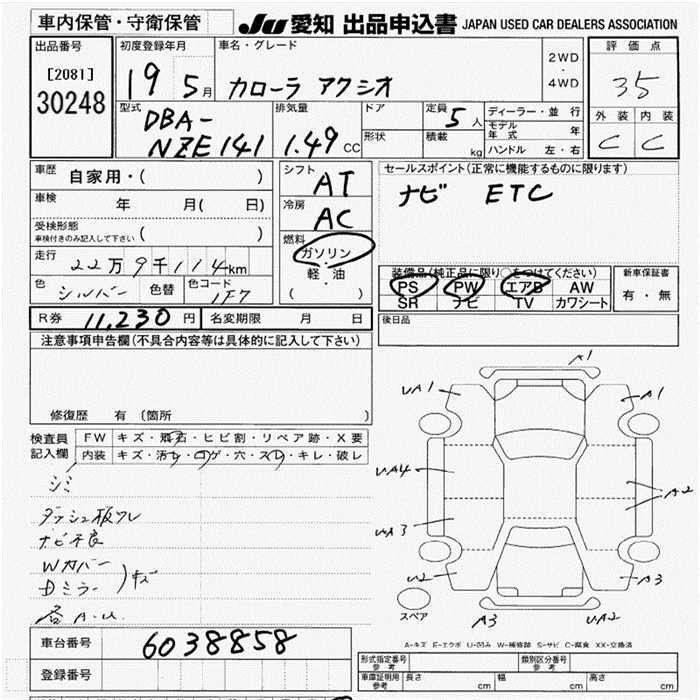 車内保管・守衛保管
JU 愛知 出品申込書 JAPAN USED CAR DEALERS ASSOCIATION
出品番号
[2081]
30248
初度登録年月
19 5月
車名・グレード
カローラ アクシオ
2WD
・
4WD
評価点
35
外装 内装
C C
型式
DBA-
NZE141
排気量
1.49CC
ドア
形状
定員 5人
積載 kg
ディーラー・並行
モデル年式 年
ハンドル 左・右
車歴
自家用・( )
車検 年 月( 日)
受検形態
車検付きのみ記入して下さい ( )
走行 22万9千114km
色 シルバー 色替 色コード 1F7
シフト
AT
冷房
AC
燃料
ガソリン
・
軽・油
・
( )
セールスポイント(正常に機能するものに限ります)
ナビ ETC
装備品(純正品に限り○をつけてください)
PS PW エアB AW
SR ナビ TV カワシート
新車保証書
有・無
R券 11,230円 名変期限 月 日
後日品
注意事項申告欄(不具合内容等は具体的に記入して下さい)
修復歴 有 (箇所 )
検査員
記入欄
FW キズ・飛石・ヒビ割・リペア跡・X要
内装 キズ・汚れ・コゲ・穴・スレ・キレ・破レ
シミ
ダッシュ板ワレ
ナビ不良
Wカバー
Dミラー
)キズ
各 A.U.
A1
UA1
A1
UA4
A2
UA3
U2
A3
スペア
A3
UA2
A-キズ E-エクボ U-凹み W-補修跡 S-サビ C-腐食 XX-交換済
車台番号 6038858
登録番号
形式指定番号
参考
類別区分番号
参考
車庫証明用
参考
長さ cm 幅 cm 高さ cm